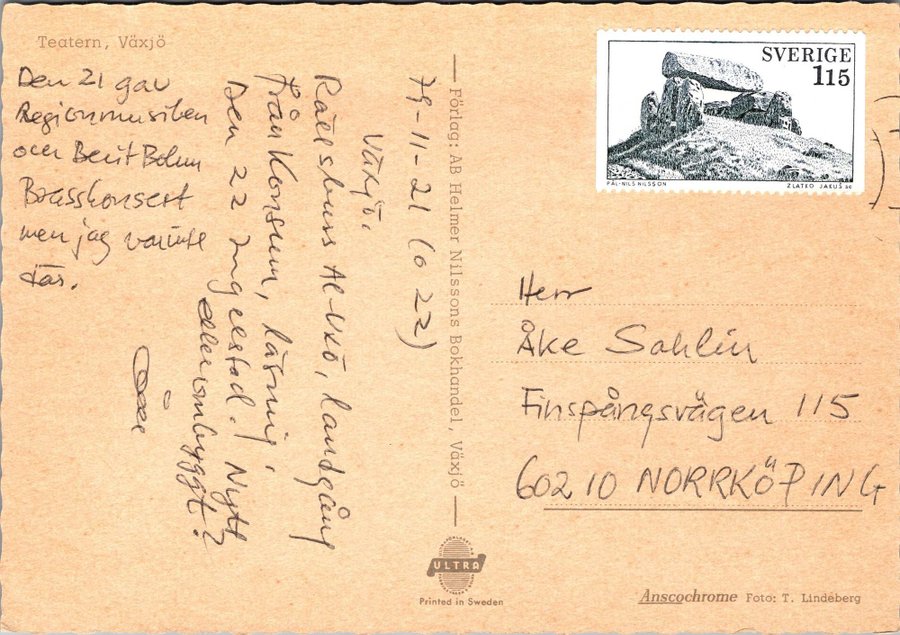 Teatern, Växjö
Den 21 gav
Regionmusiken
och Berit Bohm
Brasskonsert
men jag var inte
där.
79-11-21 (o 22)
Växjö.
Rälsbuss Al-Vxö, landgång
från Konsum, läsning.
Den 22 Ingelstad. Nytt
eller ombyggt?
Åke
Förlag: AB Helmer Nilssons Bokhandel, Växjö
SVERIGE
115
PÅL-NILS NILSSON
ZLATKO JAKUŠ sc
Herr
Åke Sahlin
Finspångsvägen 115
602 10 NORRKÖPING
ULTRA
Printed in Sweden
Anscochrome Foto: T. Lindeberg